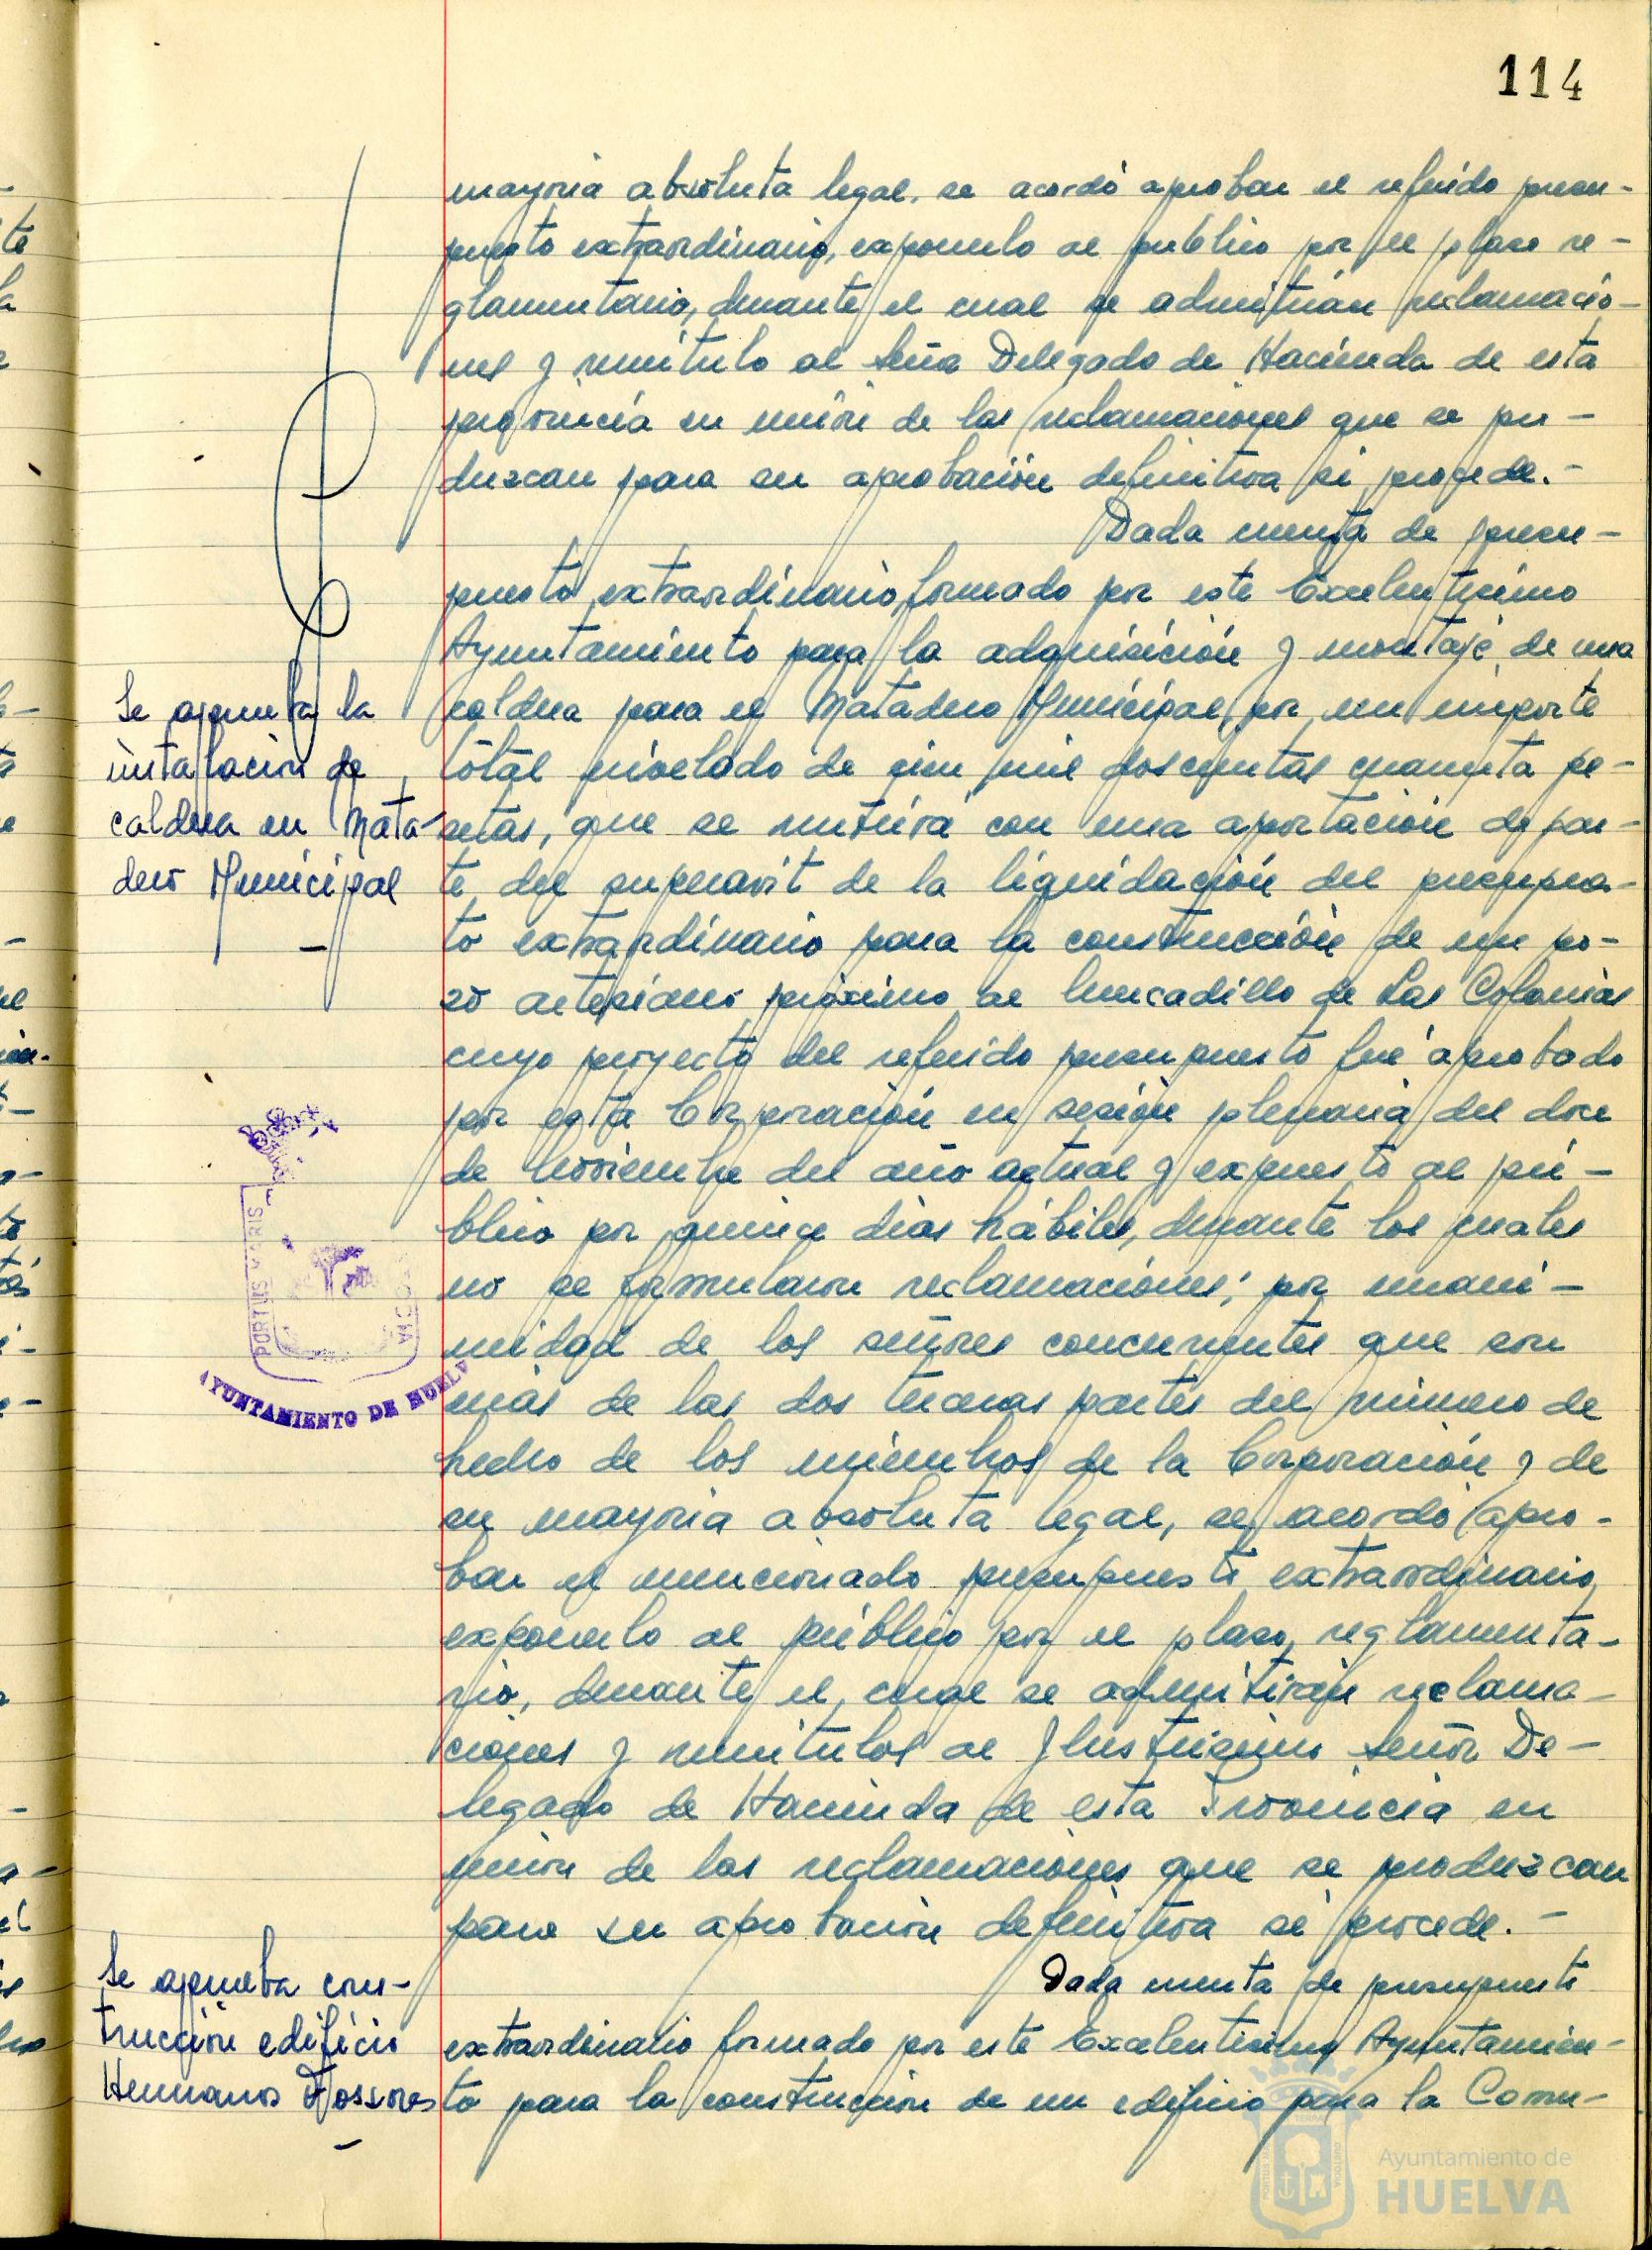 114
mayoria absoluta legal, se acordó aprobar el referido presu-
puesto extraordinario, exponerlo al publico por el plazo re-
glamentario, durante el cual se admitirán reclamacio-
nes y remitirlo al Señor Delegado de Hacienda de esta
provincia en unión de las reclamaciones que se pro-
duzcan para su aprobación definitiva si procede.-
Dada cuenta de presu-
puesto extraordinario formado por este Excelentisimo
Ayuntamiento para la adquisición y montaje de una
Se aprueba la
instalación de
caldera en Mata-
dero Municipal
-
caldera para el Matadero Municipal, por un importe
total nivelado de cien mil doscientas cuarenta pe-
setas, que se nutrirá con una aportación de par-
te del superavit de la liquidación del presupues-
to extraordinario para la construcción de un po-
zo artesiano próximo al Mercadillo de Las Colonias
cuyo proyecto del referido presupuesto fué aprobado
por esta Corporación en sesión plenaria del doce
de Noviembre del año actual y expuesto al pú-
blico por quince dias hábiles, durante los cuales
no se formularon reclamaciones; por unani-
midad de los señores concurrentes que son
más de las dos terceras partes del número de
hecho de los miembros de la Corporación y de
su mayoria absoluta legal, se acordó apro-
bar el mencionado presupuesto extraordinario,
exponerlo al público por el plazo reglamenta-
rio, durante el cual se admitirán reclama-
ciones y remitirlos al Ilustrisimo Señor De-
legado de Hacienda de esta Provincia en
unión de las reclamaciones que se produzcan
para su aprobación definitiva si procede.-
PORTUS MARIS
AYUNTAMIENTO DE HUELVA
Dada cuenta de presupuesto
Se aprueba cons-
trucción edificio
Hermanos Fossores
-
extraordinario formado por este Excelentisimo Ayuntamien-
to para la construcción de un edificio para la Comu-
Ayuntamiento de
HUELVA